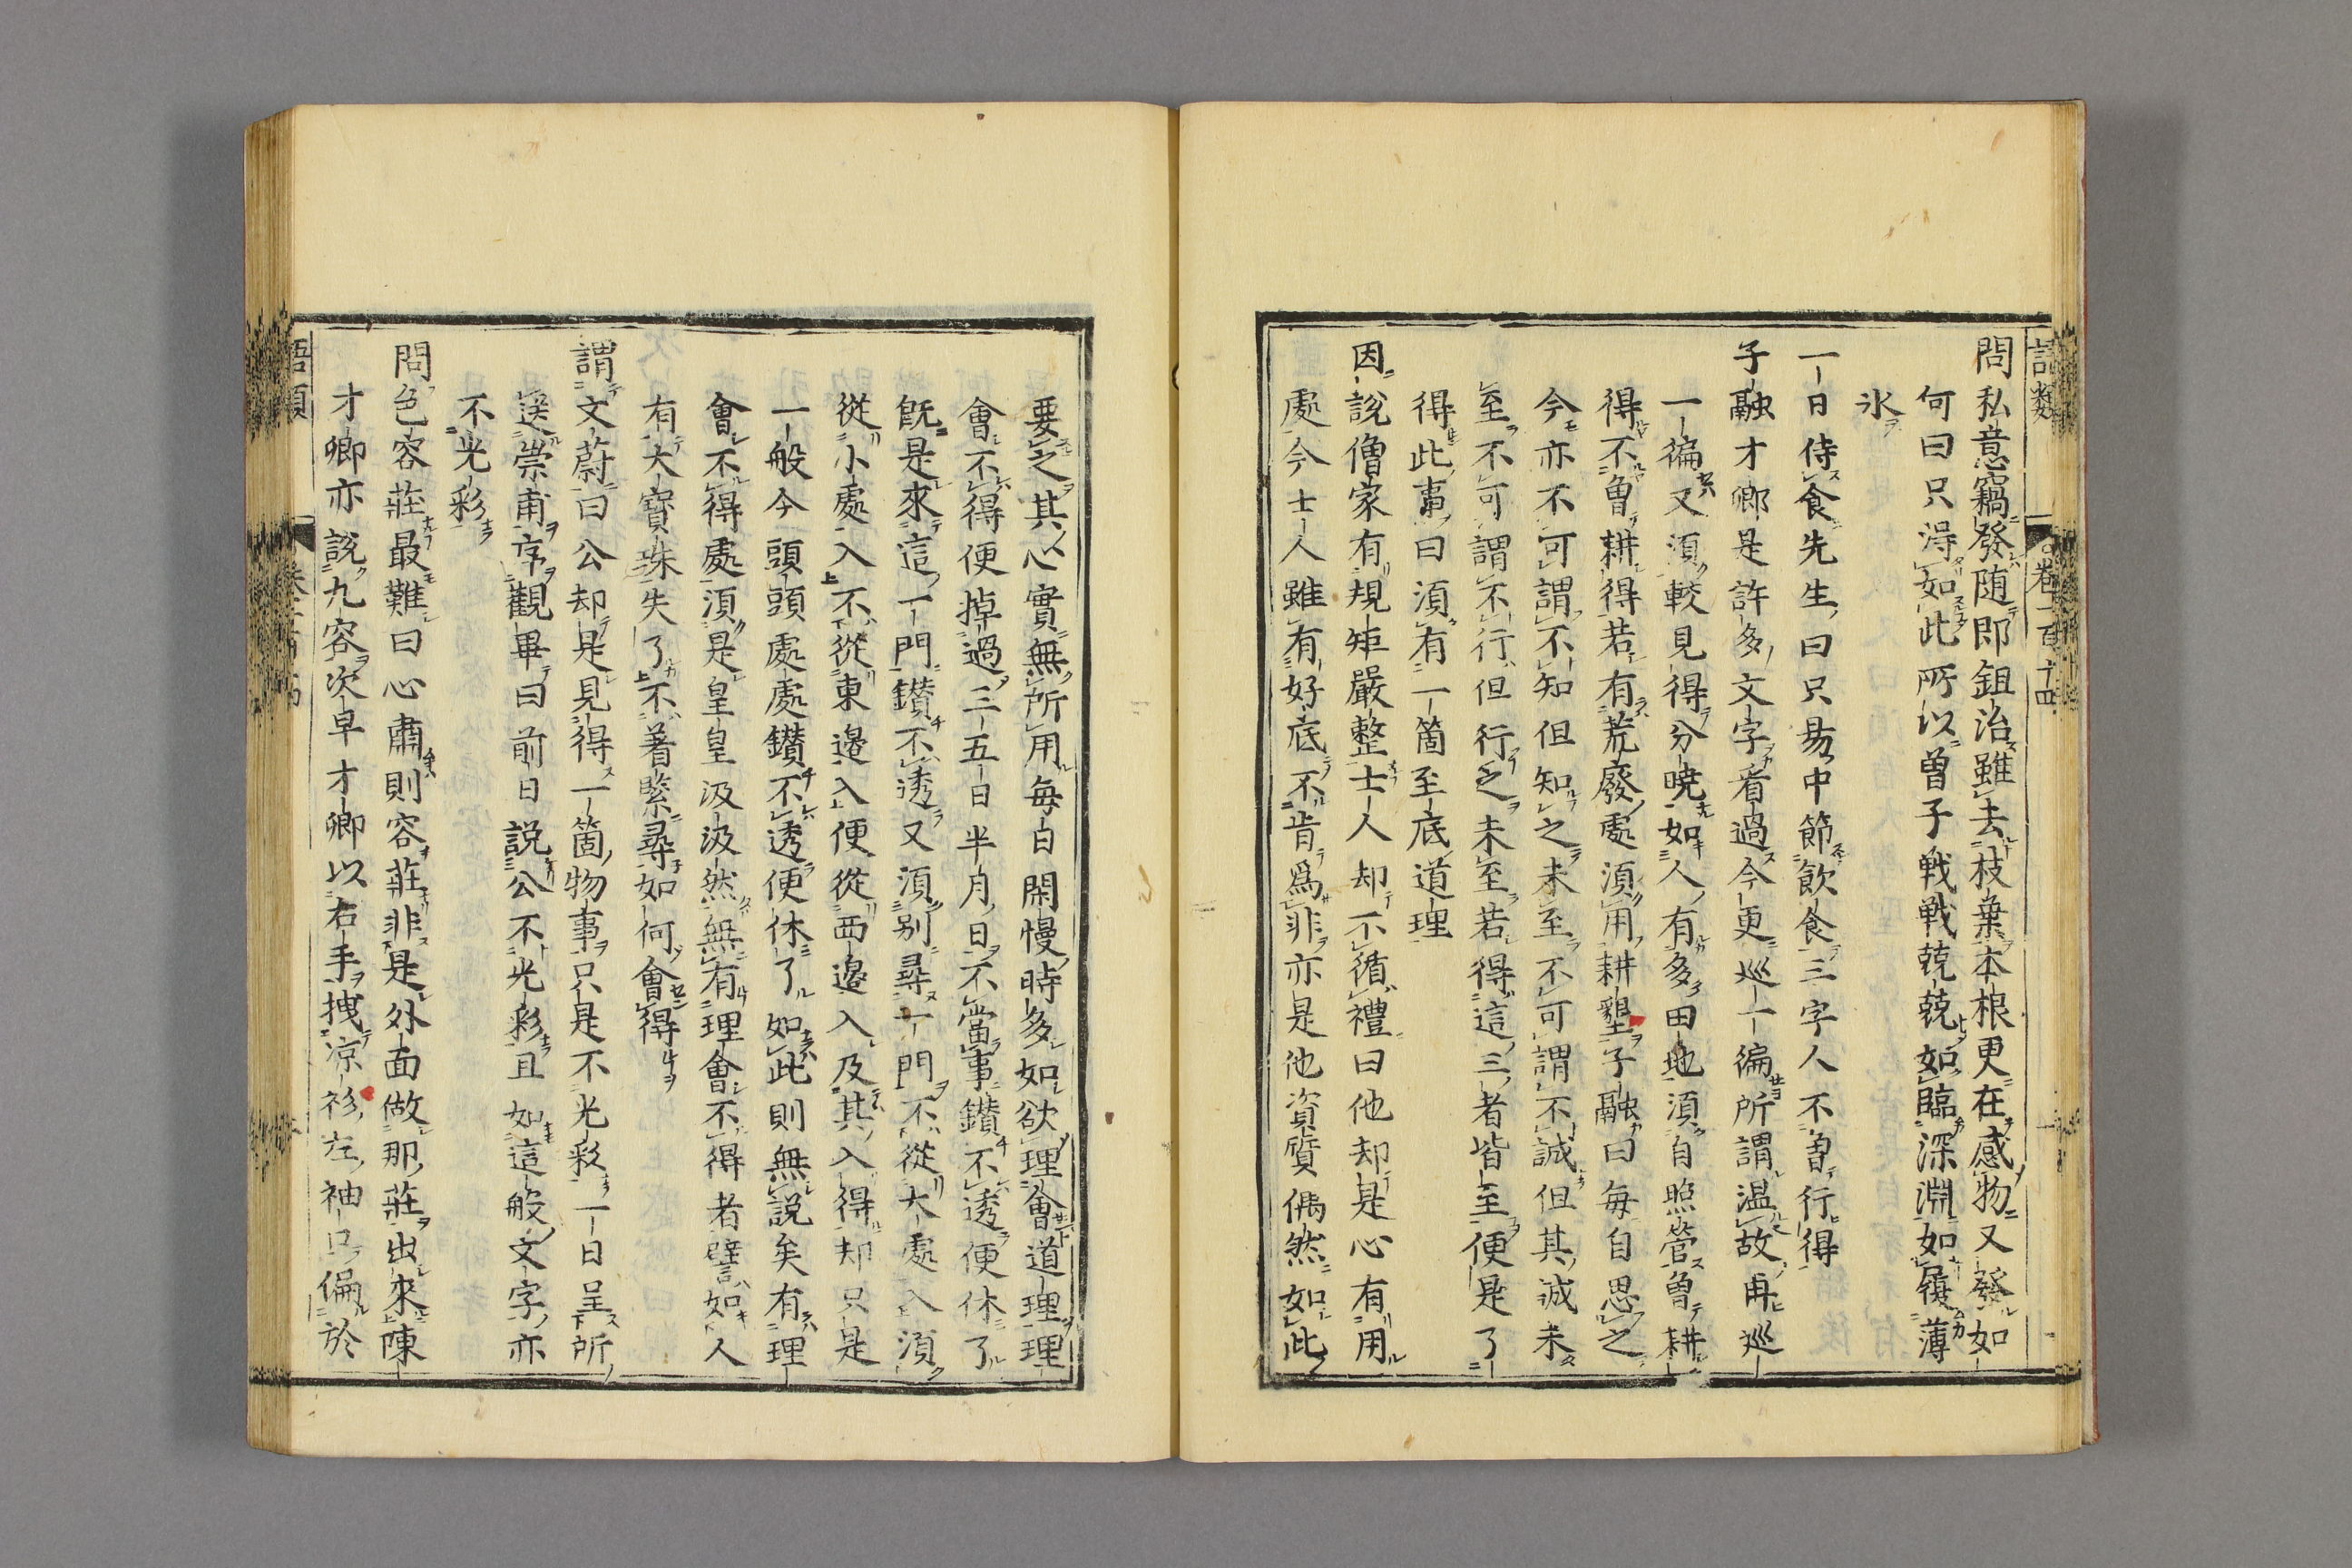 問私意竊發隨即鉏治雖去枝葉本根更在感物又發如
何曰只得如此所以曽子戦戦兢兢如臨深淵如履薄
氷
一日侍食先生曰只易中節飲食三字人不曽行得
子融才卿是許多文字看過今更巡一徧所謂温故再巡
一徧又須較見得分曉如人有多田地須自照管曽耕
得不曽耕得若有荒廢處須用耕墾子融曰每自思之
今亦不可謂不知但知之未至不可謂不誠但其誠未
至不可謂不行但行之未至若得這三者皆至便是了
得此事曰須有一箇至底道理
因說僧家有規矩嚴整士人却不循禮曰他却是心有用
處今士人雖有好底不肯爲非亦是他資質偶然如此
要之其心實無所用每日閑慢時多如欲理會道理理
會不得便掉過三五日半月日不當事鑚不透便休了
既是來這一門鑚不透又須别尋一門不從大處入須
從小處入不從東邊入便從西邊入及其入得却只是
一般今頭頭處處鑚不透便休了如此則無説矣有理
會不得處須是皇皇汲汲然無有理會不得者譬如人
有大寳珠失了不着緊尋如何會得
謂文蔚曰公却是見得一箇物事只是不光彩一日呈所
送崇甫序觀畢曰前日説公不光彩且如這般文字亦
不光彩
問色容莊最難曰心肅則容莊非是外面做那莊出來陳
才卿亦說九容次早才卿以右手拽凉衫左袖口偏於
語類
卷一百十四
語類